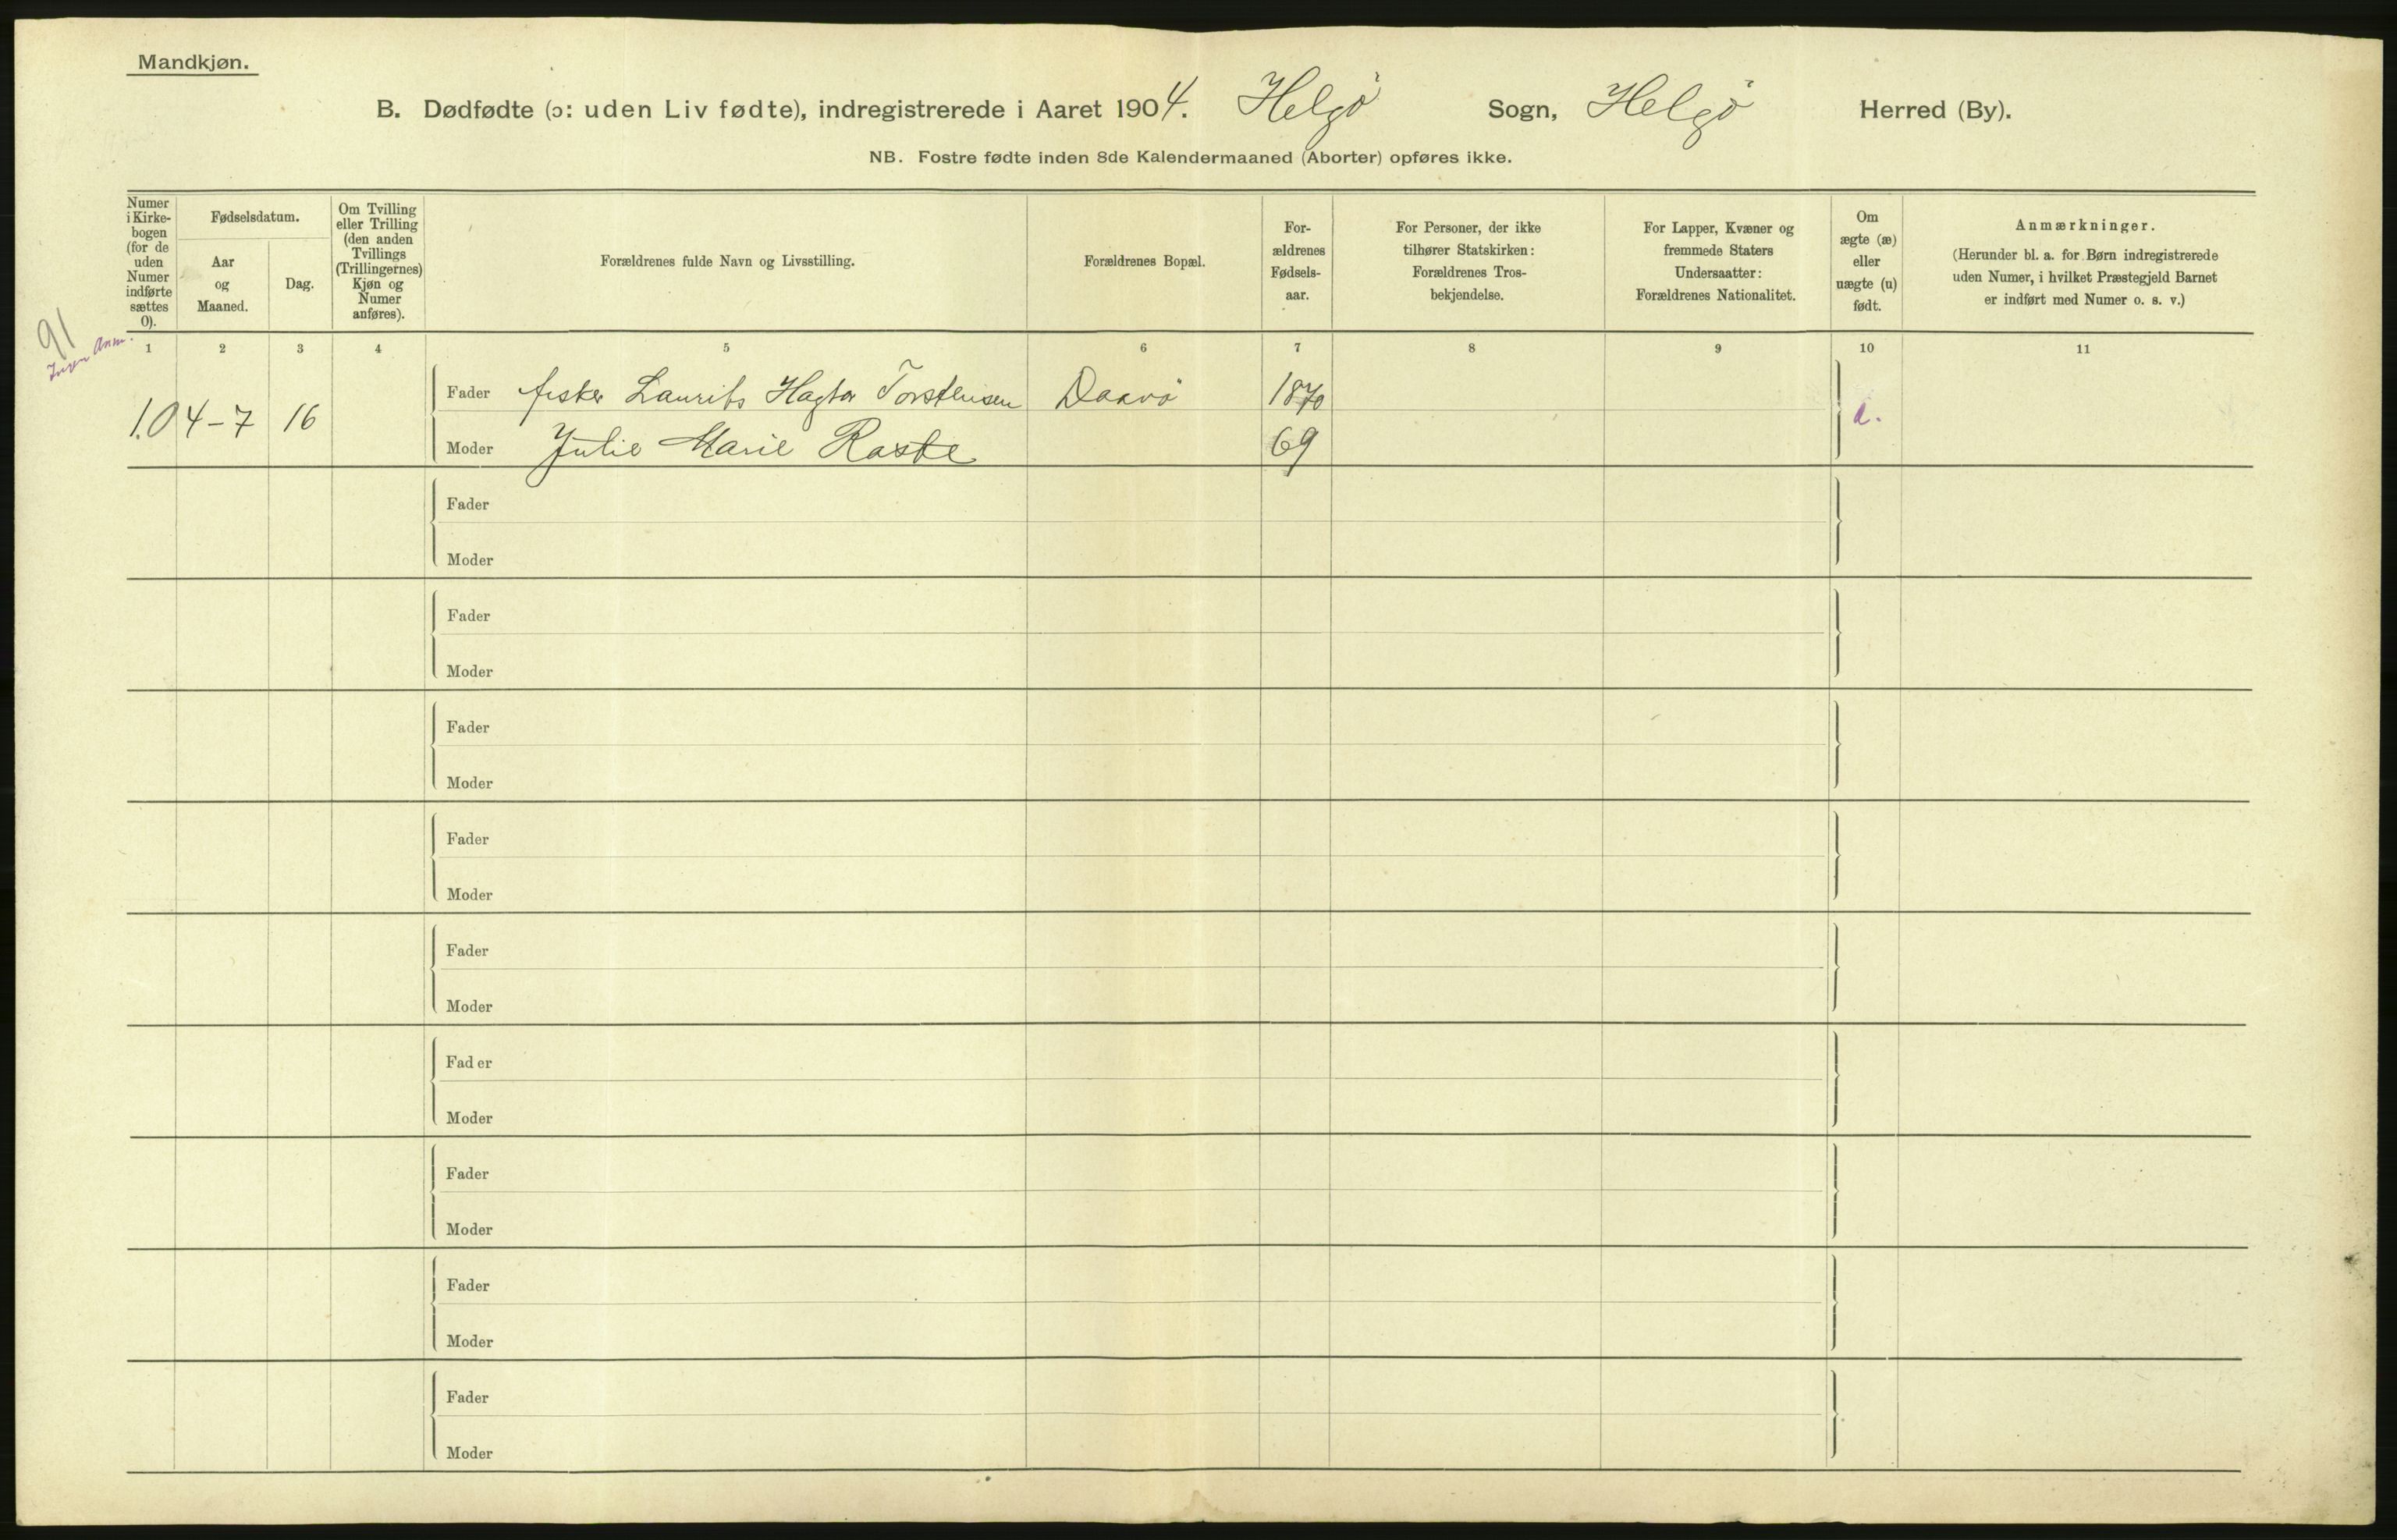 Mandkjøn.
B. Dødfødte (ɔ: uden Liv fødte), indregistrerede i Aaret 1904. Helgö Sogn, Helgö Herred (By).
NB. Fostre fødte inden 8de Kalendermaaned (Aborter) opføres ikke.
Numer
i Kirke-
bogen
(for de
uden
Numer
indførte
sættes
0).
Fødselsdatum.
Aar
og
Maaned.
Dag.
Om Tvilling
eller Trilling
(den anden
Tvillings
(Trillingernes)
Kjøn og
Numer
anføres).
Forældrenes fulde Navn og Livsstilling.
Forældrenes Bopæl.
For-
ældrenes
Fødsels-
aar.
For Personer, der ikke
tilhører Statskirken:
Forældrenes Tros-
bekjendelse.
For Lapper, Kvæner og
fremmede Staters
Undersaatter:
Forældrenes Nationalitet.
Om
ægte (æ)
eller
uægte (u)
født.
Anmærkninger.
(Herunder bl. a. for Børn indregistrerede
uden Numer, i hvilket Præstegjeld Barnet
er indført med Numer o. s. v.)
91
Ingen Anm.
1 2 3 4 5 6 7 8 9 10 11
1. 04-7 16 Fader fisker Laurits Torstensen 1870
Moder Julie Marie 69
Fader
Moder
Fader
Moder
Fader
Moder
Fader
Moder
Fader
Moder
Fader
Moder
Fader
Moder
Fader
Moder
Fader
Moder